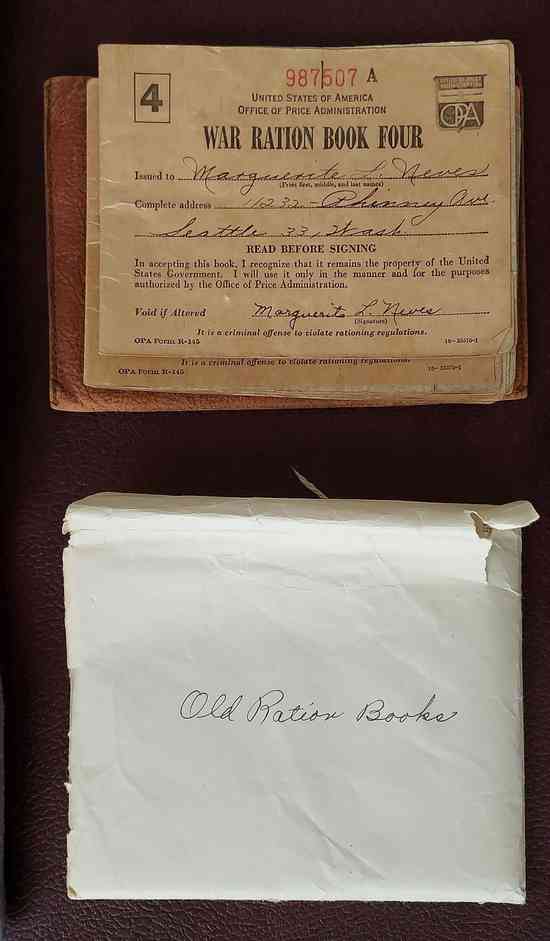 987507 A
4
UNITED STATES OF AMERICA
OFFICE OF PRICE ADMINISTRATION
OPA
WAR RATION BOOK FOUR
Issued to Marguerite L. Neves
(Print first, middle, and last names)
Complete address Phinney Ave.
Seattle 33, Wash.
READ BEFORE SIGNING
In accepting this book, I recognize that it remains the property of the United
States Government. I will use it only in the manner and for the purposes
authorized by the Office of Price Administration.
Void if Altered Marguerite L. Neves
(Signature)
It is a criminal offense to violate rationing regulations.
OPA Form R-145 16—35570-1
It is a criminal offense to violate rationing regulations.
OPA Form R-145 16—35570-1
Old Ration Books